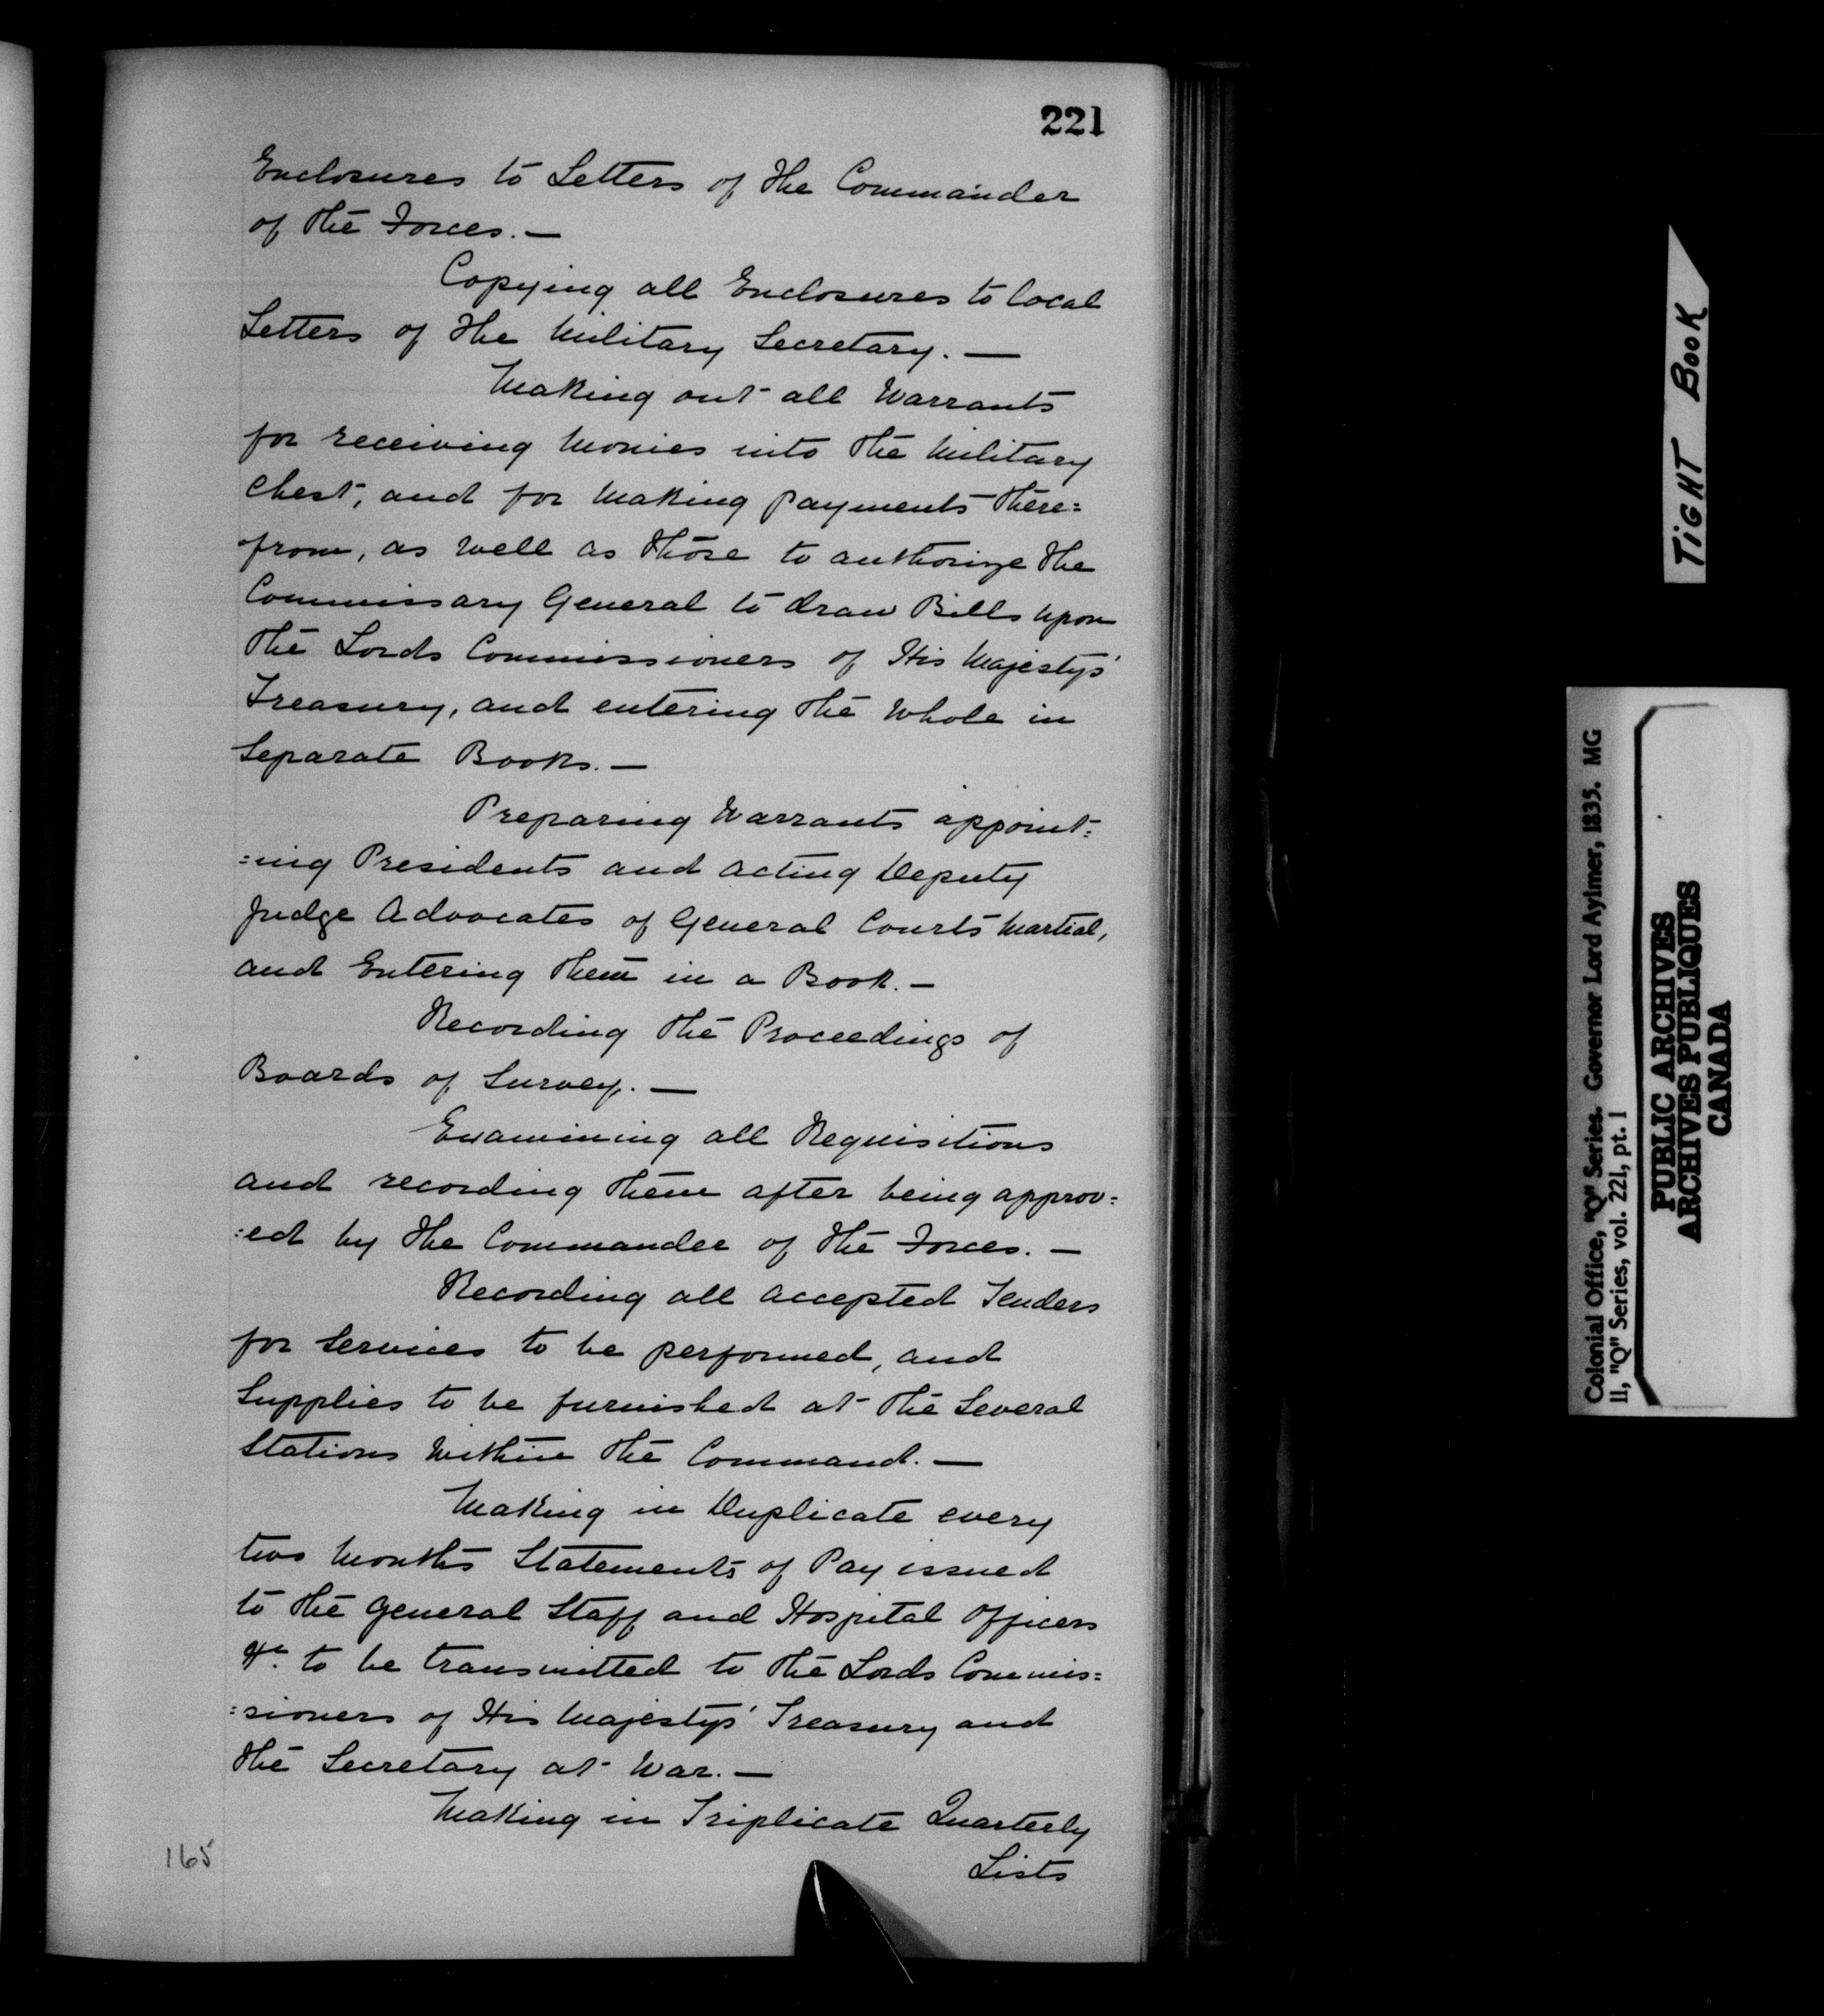 221
Enclosures to Letters of the Commander
of the Forces. —
Copying all Enclosures to local
Letters of the Military Secretary. —
Making out all Warrants
for receiving Monies into the Military
Chest, and for Making payments there=
from, as well as those to authorize the
Commissary General to draw Bills upon
the Lords Commissioners of His Majestys'
Treasury, and entering the whole in
Separate Books. —
Preparing Warrants appoint=
=ing Presidents and acting Deputy
Judge Advocates of General Courts Martial,
and Entering them in a Book. —
Recording the Proceedings of
Boards of Survey. —
Examining all Requisitions
and recording them after being approv=
=ed by the Commander of the Forces. —
Recording all accepted Tenders
for Services to be performed, and
Supplies to be furnished at the Several
Stations Within the Command. —
Making in Duplicate every
two Months Statements of Pay issued
to the General Staff and Hospital Officers
&c. to be transmitted to the Lords Commis=
=sioners of His Majestys' Treasury and
the Secretary at War. —
Making in Triplicate Quarterly
Lists
165
TIGHT BOOK
Colonial Office, "Q" Series. Governor Lord Aylmer, 1835. MG
11, "Q" Series, vol. 221, pt. 1
PUBLIC ARCHIVES
ARCHIVES PUBLIQUES
CANADA